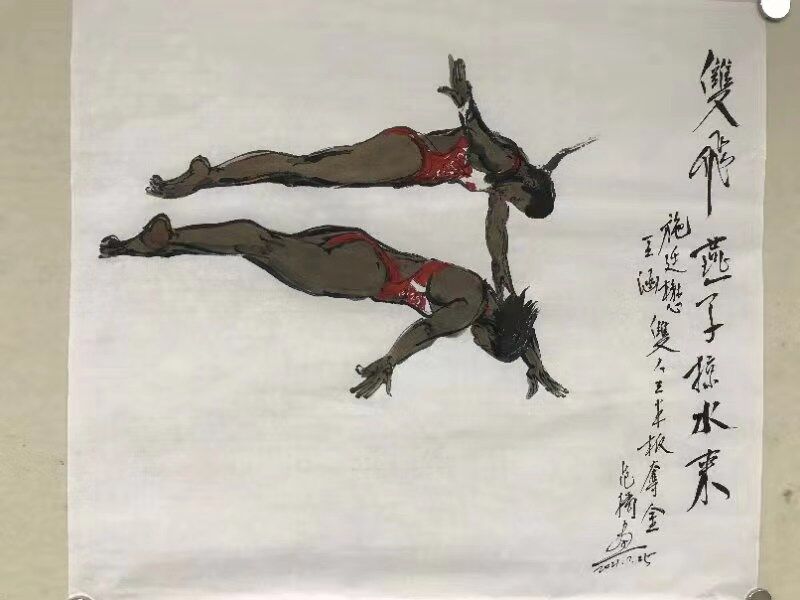 雙飛燕子掠水来
施廷懋
王涵 雙人三米板奪金
范楠画
2021.7.25